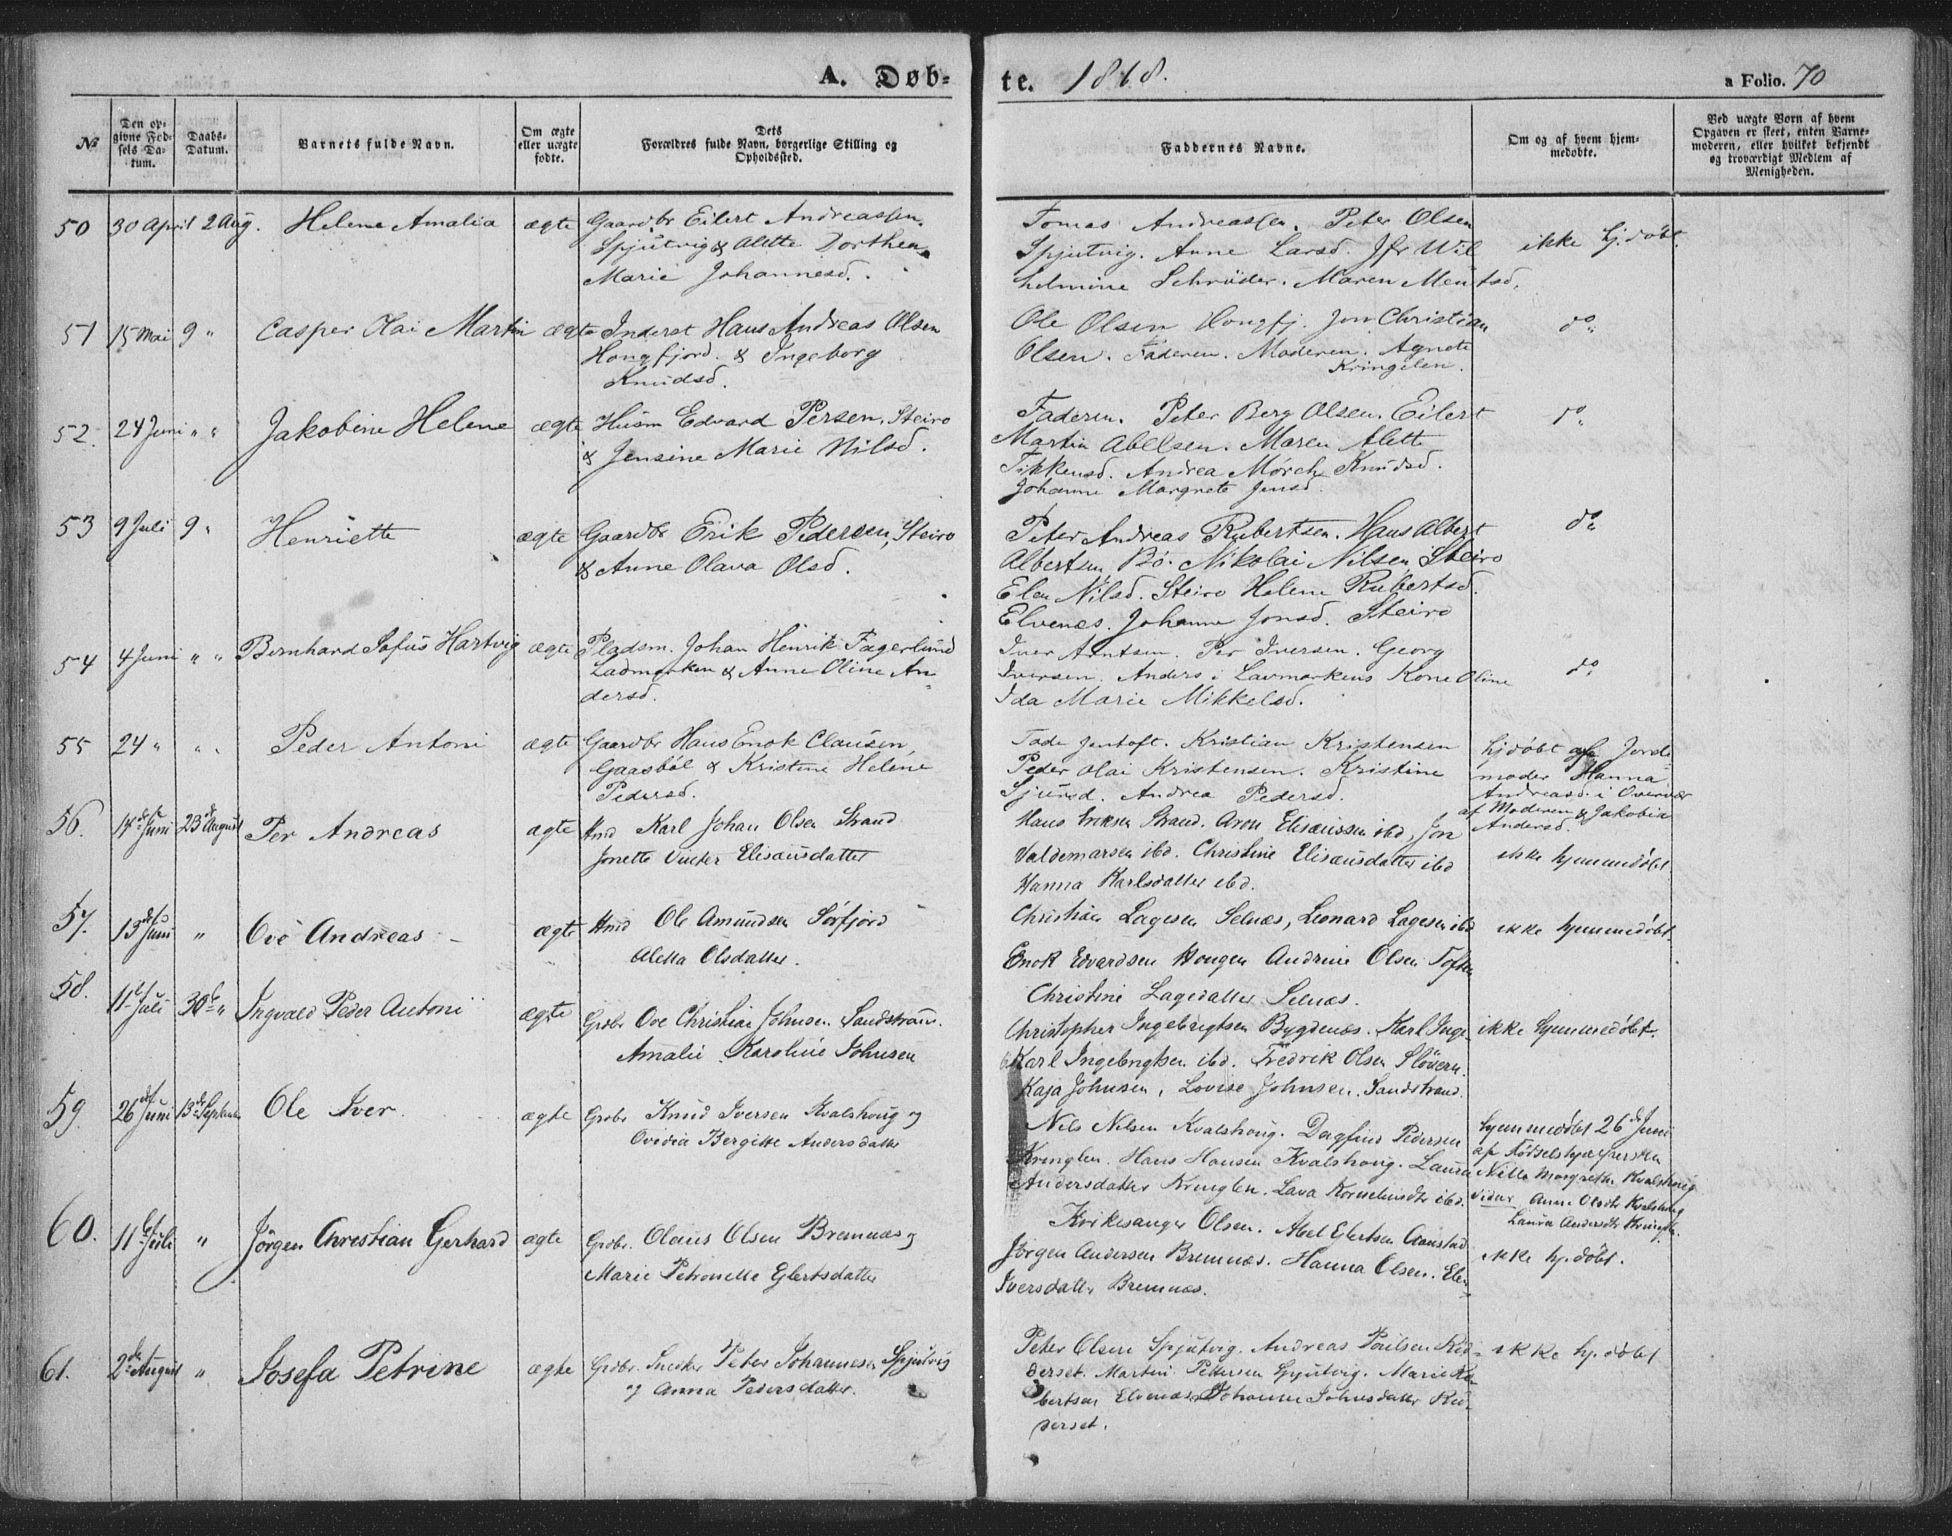 A. Døb-
te. 1868.
a Folio. 70
№
Den op-
givne Fød-
sels Da-
tum.
Daabs-
Datum.
Barnets fulde Navn.
Om ægte
eller uægte
fødte.
Dets
Forældres fulde Navn, borgerlige Stilling og
Opholdssted.
Faddernes Navne.
Om og af hvem hjem-
medøbte.
Ved uægte Børn af hvem
Opgaven er skeet, enten Barne-
moderen, eller hvilket bekjendt
og troværdigt Medlem af
Menigheden.
50 30 April 2 Aug. Helene Amalia ægte Gaardbr Eilert Andreassen
Spjutvig & Alette Dorthea
Marie Johannesd.
Tomas Andreassen. Peter Olsen
Spjutvig. Anne Larsd. Jfr Wil
helmine Schrøder. Maren Mentsd.
ikke hj.døbt.
51 15 Mai 9 " Casper Kai Martin ægte Inderst Hans Andreas Olsen
Hongfjord. & Ingeborg
Knudsd.
Ole Olsen Hongfj. Jon Christian
Olsen. Faderen. Moderen. Agnete
Kringelen.
do
52. 24 Juni " " Jakobine Helene ægte Husm Edvard Persen, Steiro
& Jensine Marie Nilsd.
Faderen. Peter Berg Olsen. Eilert
Martin Abelsen. Maren Alette
Fikkensd. Andrea Mörch Knudsd.
Johanne Margrete Jensd.
do
53 9 Juli 9 " Henriette ægte Gaardbr Erik Pedersen, Steiro
& Anne Olava Olsd.
Peter Andreas Rubertsen. Hans Albert
Albertsen Bö. Nikolai Nilsen Steiro
Elen Nilsd. Steiro Helene Rubertsd.
Elvenæs. Johanne Jonsd. Steiro
do
54 4 Juni " " Bernhard Sofus Hartvig ægte Pladsm. Johan Henrik Fagerlund
Ladmarken & Anne Oline An
dersd.
Iver Arntsen. Per Iversen. Georg
Iversen. Anders i Lavmarkens Kone Oline
Ida Marie Mikkelsd.
do
55 24 " " " Peder Antoni ægte Gaardbr Hans Enok Clausen,
Gaasböl & Kristine Helene
Pedersd.
Tode Jentoft. Kristian Kristensen
Peder Olai Kristensen. Kristine
Sjursd. Andrea Pedersd.
hjdøbt af Jorde
moder Hanna
Andreasd. i Overvær
af Moderen & Jakobia
Andersd.
56. 14de Juni 23de August Per Andreas ægte Hmd Karl Johan Olsen Strand
Jonette Elisæusdatter
Hans Eriksen Strand. Aron Elisæussen ibd, Jon
Valdemarsen ibd. Christine Elisæusdatter ibd
Hanna Karlsdatter ibd.
ikke hjemmedøbt
57. 13de Juni " Ove Andreas – ægte Hmd Ole Amundsen Sörfjord
Aletta Olsdatter.
Christian Lagesen Selnæs, Leonard Lagesen ibd
Enok Edvardsen Hongen Andrine Olsen Toften
Christine Lagedatter Selnæs.
ikke hjemmedøbt
58. 11te Juli 30te " Ingvald Peder Antoni ægte Grdbr Ove Christian Johnsen Sandstrand.
Amalie Karoline Johnsen
Christopher Ingebrigtsen Bygdenæs. Karl Inge
Karl Ingebrigtsen ibd. Fredrik Olsen Slöveren.
Kaja Johnsen, Lovise Johnsen. Sandstrand.
ikke hjemmedøbt.
59. 26de Juni 13de September Ole Iver. ægte Grdbr Knud Iversen Kvalshoug og
Ovidia Bergitte Andersdatter
Nils Nilsen Kvalshoug. Dagfind Pedersen
Kringlen. Hans Hansen Kvalshoug. Laura
Andersdatter Kringlen. Lava Korneliusdtr ibd.
hjemmedøbt 26de Juni
af Fødselshjælpersken
Nille Margrethe Kvalshoug
Vidner Anne Olsdtr Kvalshoug
Laura Andersdtr Kringle.
60. 11te Juli " Jørgen Christian Gerhard ægte Grdbr. Olaus Olsen Bremnæs og
Marie Petronelle Eglertsdatter
Kirkesanger Olsen. Abel Eglertsen Aanstad
Jørgen Andersen Bremnæs. Hanna Olsen. Elen
Iversdatter Bremnæs.
ikke hj.døbt.
61. 2den August " Josefa Petrine ægte Grdbr. Snedker Peter Johannesen Spjutvig
og Anna Pedersdatter.
Peter Olsen Spjutvig. Andreas Poulsen Rö-
derset. Martin Pettersen Spjutvig. Marie Ro
bertsen Elvenæs. Johanna Johnsdatter Rö-
derset.
ikke hj.døbt